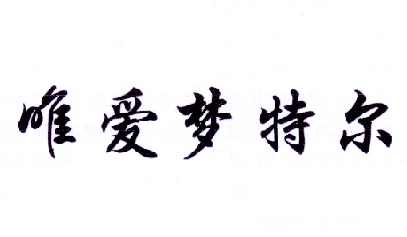 唯爱梦特尔